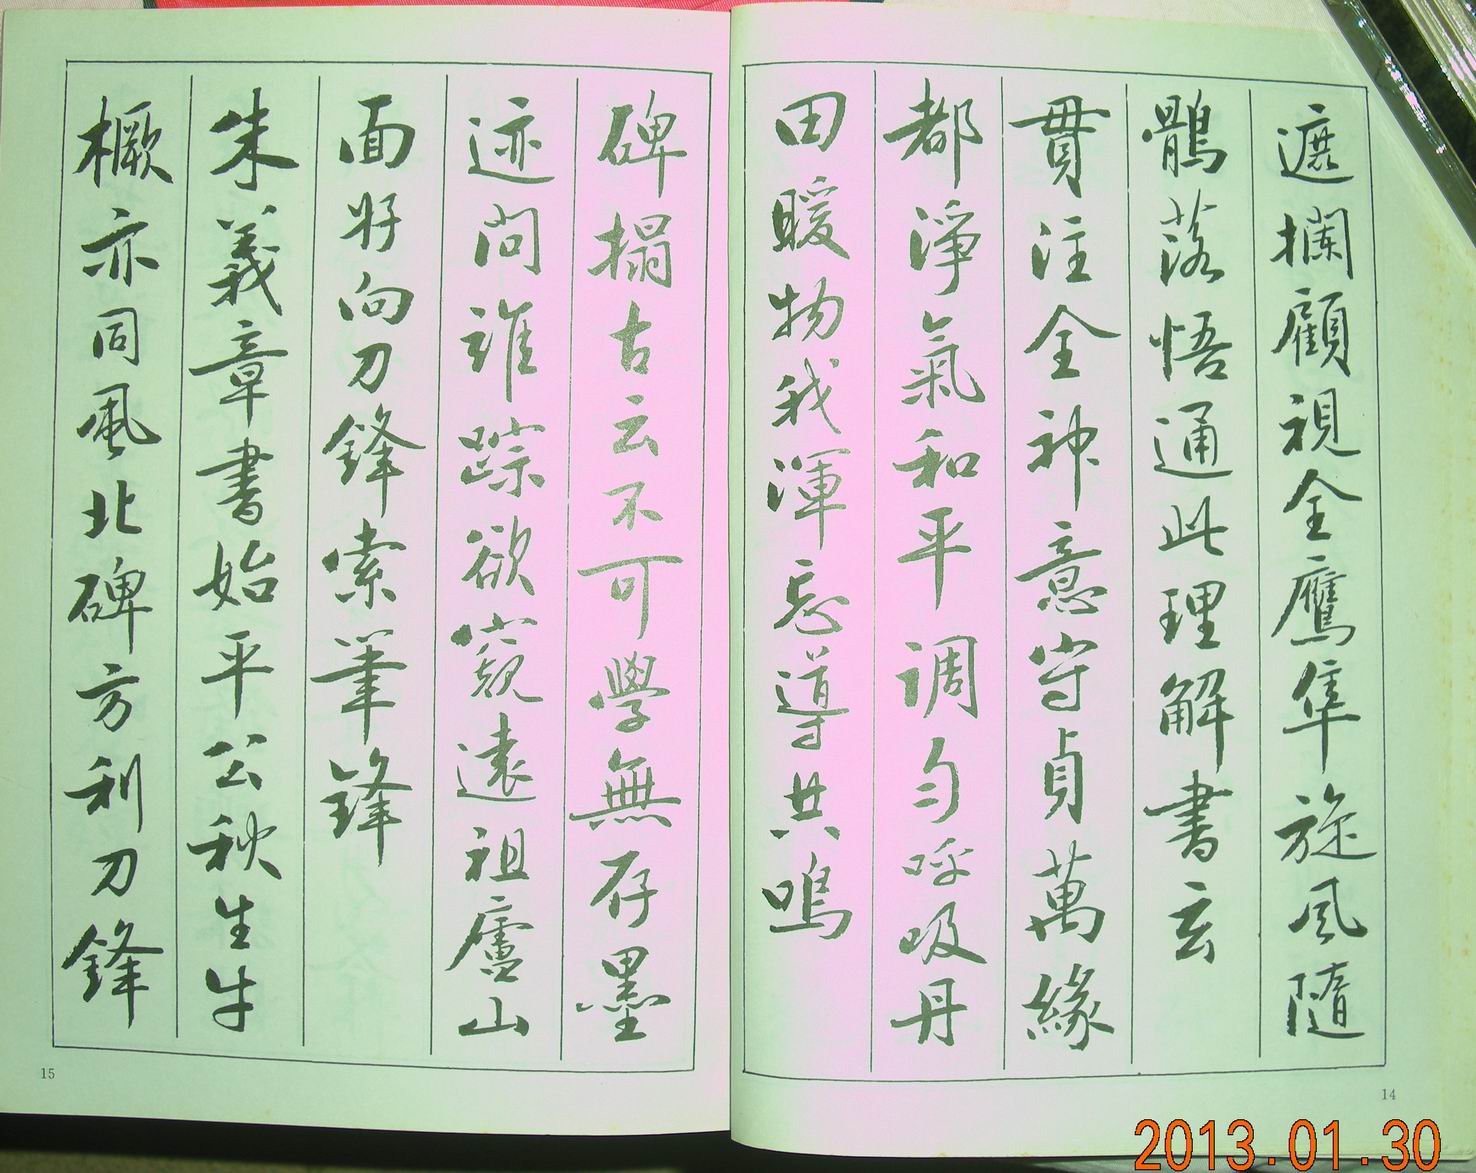 遮攔顧視全鷹隼旋風隨
鶻落悟通此理解書玄
貫注全神意守貞萬緣
都淨氣和平調勻呼吸丹
田暖物我渾忘導共鳴
14
碑搨古云不可學無存墨
迹問誰踪欲窺遠祖廬山
面好向刀鋒索筆鋒
朱義章書始平公秋生牛
橛亦同風北碑方利刀鋒
15
2013.01.30